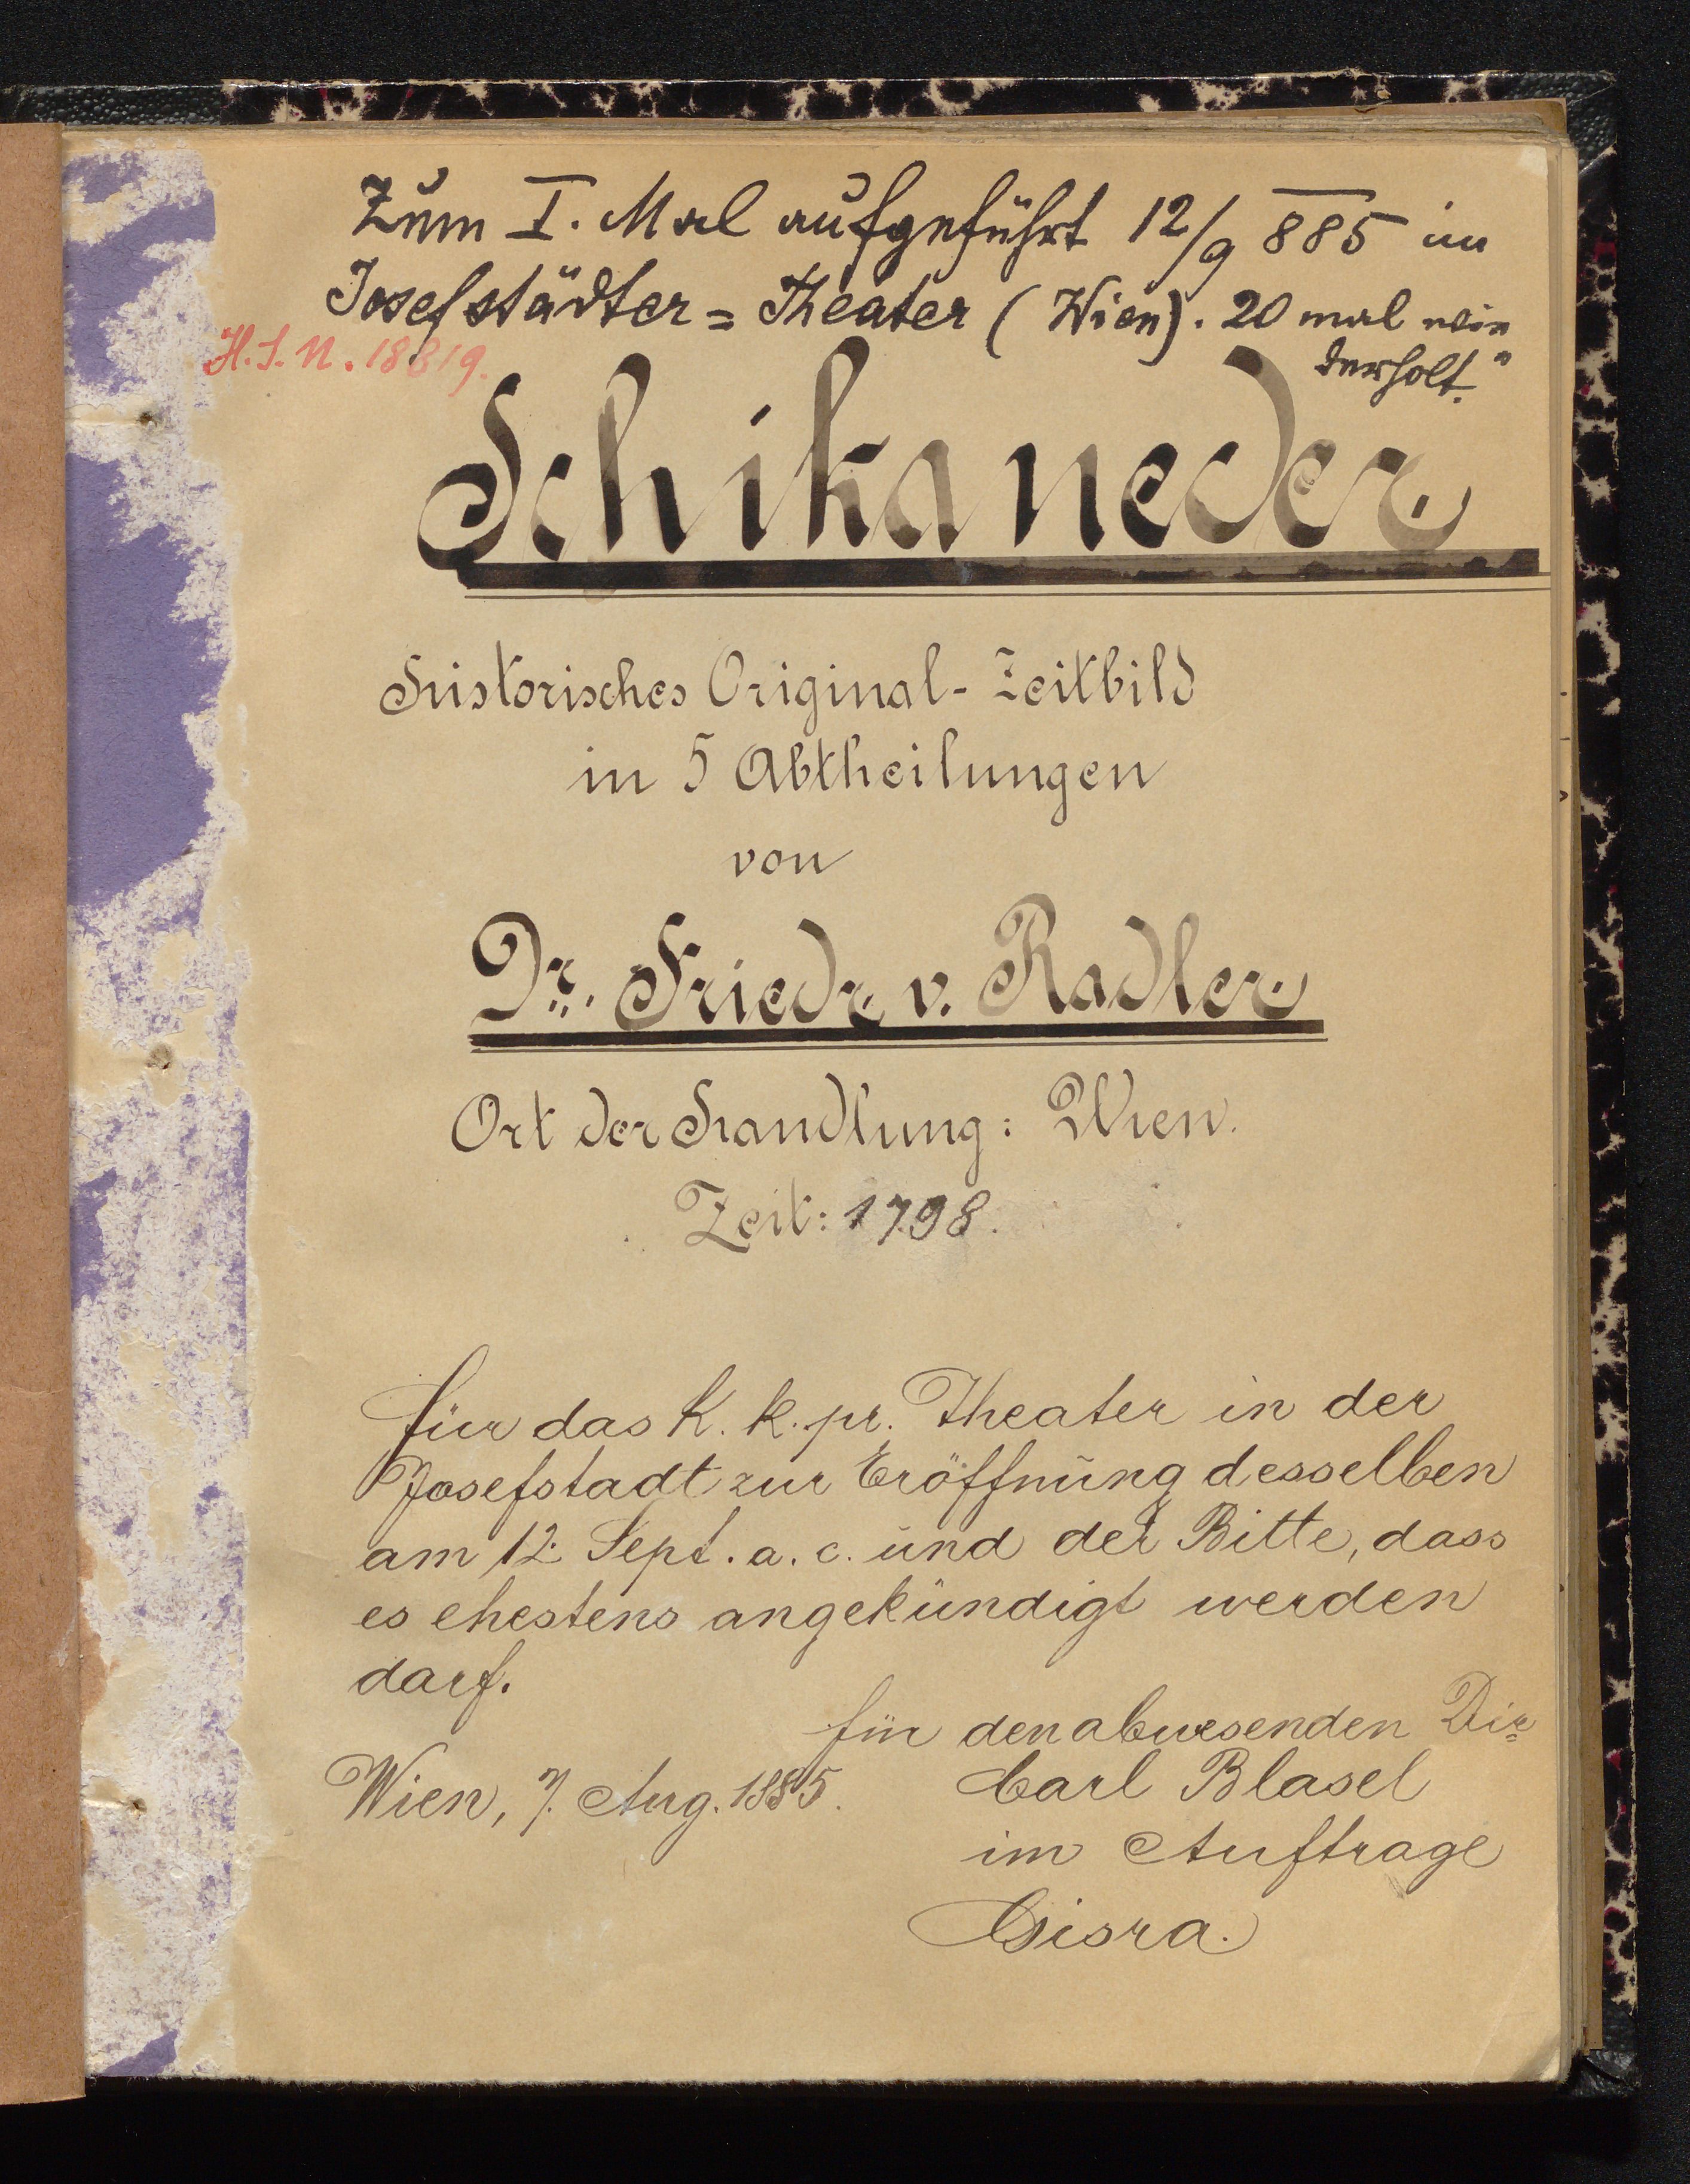 Zum I. Mal aufgeführt 12/9 885 im
Josefstädter= Theater (Wien). 20 mal wie=
derholt.
H.I.N. 18819.
Schikaneder
Historisches Original-Zeitbild
in 5 Abtheilungen
von
Dr. Friedr. v. Radler
Ort der Handlung: Wien.
Zeit: 1798.
für das K. k. pr. Theater in der
Josefstadt zur Eröffnung desselben
am 12. Sept. a. c. und der Bitte, dass
es ehestens angekündigt werden
darf.
für den abwesenden Dir.
Wien, 7. Aug. 1885. Carl Blasel
im Auftrage